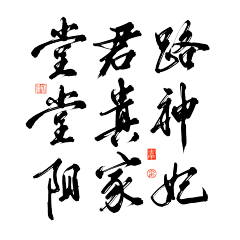 路神妃
君贵家
堂堂阳